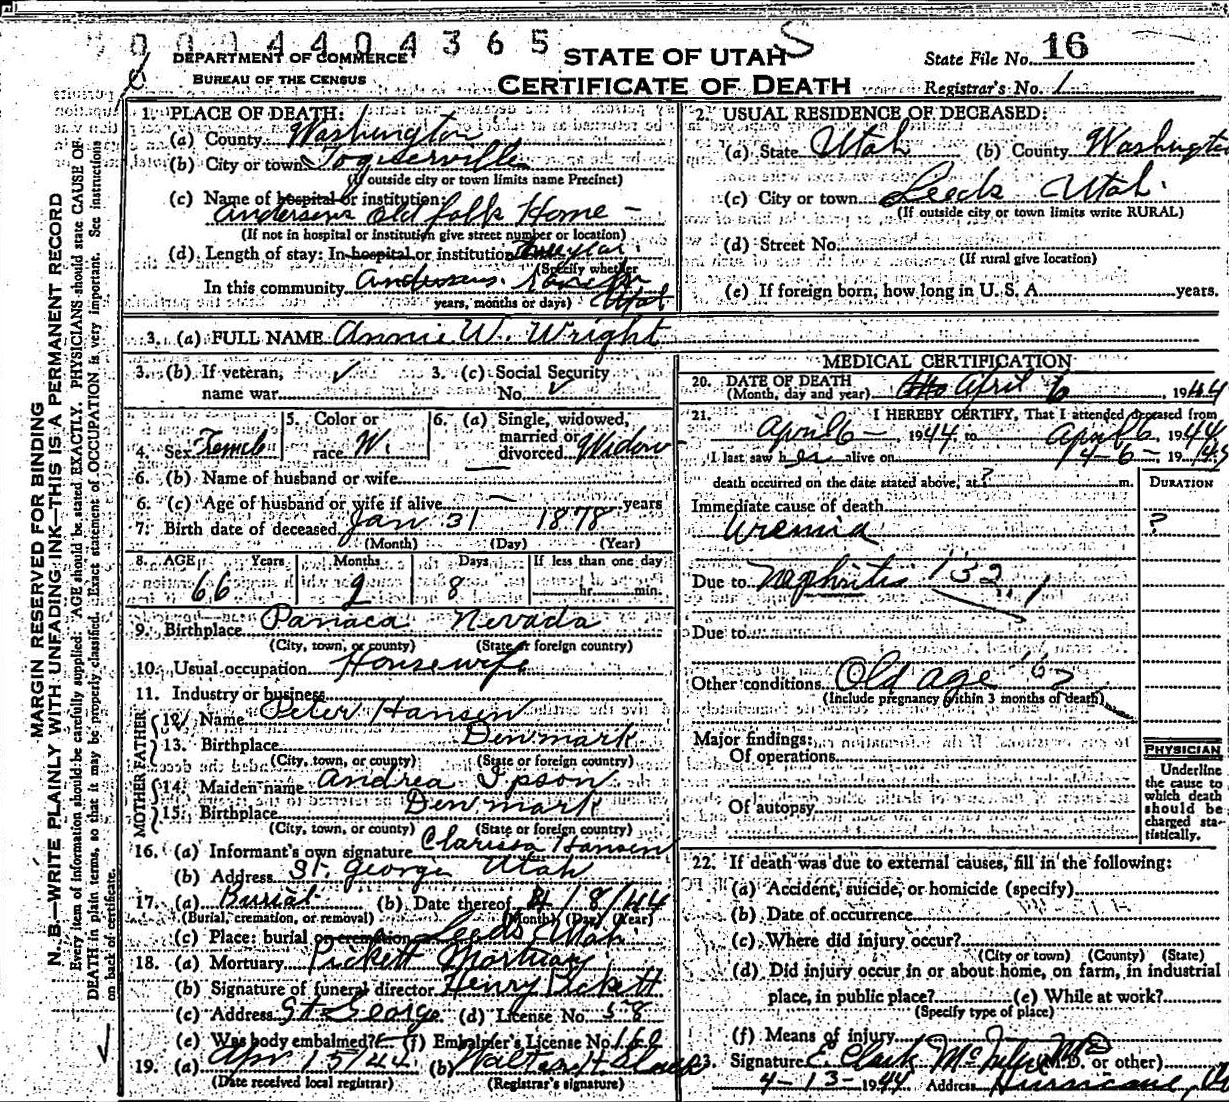 0 0 0 4 4 0 4 3 6 5
DEPARTMENT OF COMMERCE
BUREAU OF THE CENSUS
STATE OF UTAH S
CERTIFICATE OF DEATH
State File No. 16
Registrar's No. 1
MARGIN RESERVED FOR BINDING
N. B.—WRITE PLAINLY WITH UNFADING INK—THIS IS A PERMANENT RECORD
Every item of information should be carefully supplied. AGE should be stated EXACTLY. PHYSICIANS should state CAUSE OF
DEATH in plain terms, so that it may be properly classified. Exact statement of OCCUPATION is very important. See instructions
on back of certificate.
1. PLACE OF DEATH:
(a) County Washington
(b) City or town Toquerville
(If outside city or town limits name Precinct)
(c) Name of hospital or institution:
Andersens Old folks Home —
(If not in hospital or institution give street number or location)
(d) Length of stay: In hospital or institution
(Specify whether
In this community
years, months or days) Utah
2. USUAL RESIDENCE OF DECEASED:
(a) State Utah (b) County Washington
(c) City or town Leeds Utah.
(If outside city or town limits write RURAL)
(d) Street No.
(If rural give location)
(e) If foreign born, how long in U. S. A. years.
3. (a) FULL NAME Annie W. Wright
3. (b) If veteran, name war ✓
3. (c) Social Security No. ✓
4. Sex Female
5. Color or race W.
6. (a) Single, widowed, married or divorced Widow
6. (b) Name of husband or wife —
6. (c) Age of husband or wife if alive — years
7. Birth date of deceased Jan 31 1878
(Month) (Day) (Year)
8. AGE Years Months Days If less than one day
66 2 8 hr. min.
9. Birthplace Panaca Nevada
(City, town, or county) (State or foreign country)
10. Usual occupation Housewife
11. Industry or business
FATHER
12. Name Peter Hansen
13. Birthplace Denmark
(City, town, or county) (State or foreign country)
MOTHER
14. Maiden name Andrea Ipson
15. Birthplace Denmark
(City, town, or county) (State or foreign country)
16. (a) Informant's own signature Clarissa Hansen
(b) Address St. George Utah
17. (a) Burial (b) Date thereof 4/8/44
(Burial, cremation, or removal) (Month) (Day) (Year)
(c) Place: burial or cremation Leeds, Utah.
18. (a) Mortuary Pickett Mortuary
(b) Signature of funeral director Henry Pickett
(c) Address St George. (d) License No. 58
(e) Was body embalmed? (f) Embalmer's License No. 160
19. (a) Apr 15/44 (b) Walter H
(Date received local registrar) (Registrar's signature)
MEDICAL CERTIFICATION
20. DATE OF DEATH
(Month, day and year) April 6, 1944
21. I HEREBY CERTIFY, That I attended deceased from
April 6 — 1944 to April 6, 1944
I last saw her alive on 4-6- 19
death occurred on the date stated above, at ? m.
DURATION
Immediate cause of death
Uremia ?
Due to Nephritis 132
Due to
Other conditions Old age
(Include pregnancy within 3 months of death)
Major findings:
Of operations
Of autopsy
PHYSICIAN
Underline
the cause to
which death
should be
charged sta-
tistically.
22. If death was due to external causes, fill in the following:
(a) Accident, suicide, or homicide (specify)
(b) Date of occurrence
(c) Where did injury occur?
(City or town) (County) (State)
(d) Did injury occur in or about home, on farm, in industrial
place, in public place? (e) While at work?
(Specify type of place)
(f) Means of injury
23. Signature E. Clark M.D. (M.D. or other)
4-13-1944 Address Hurricane,